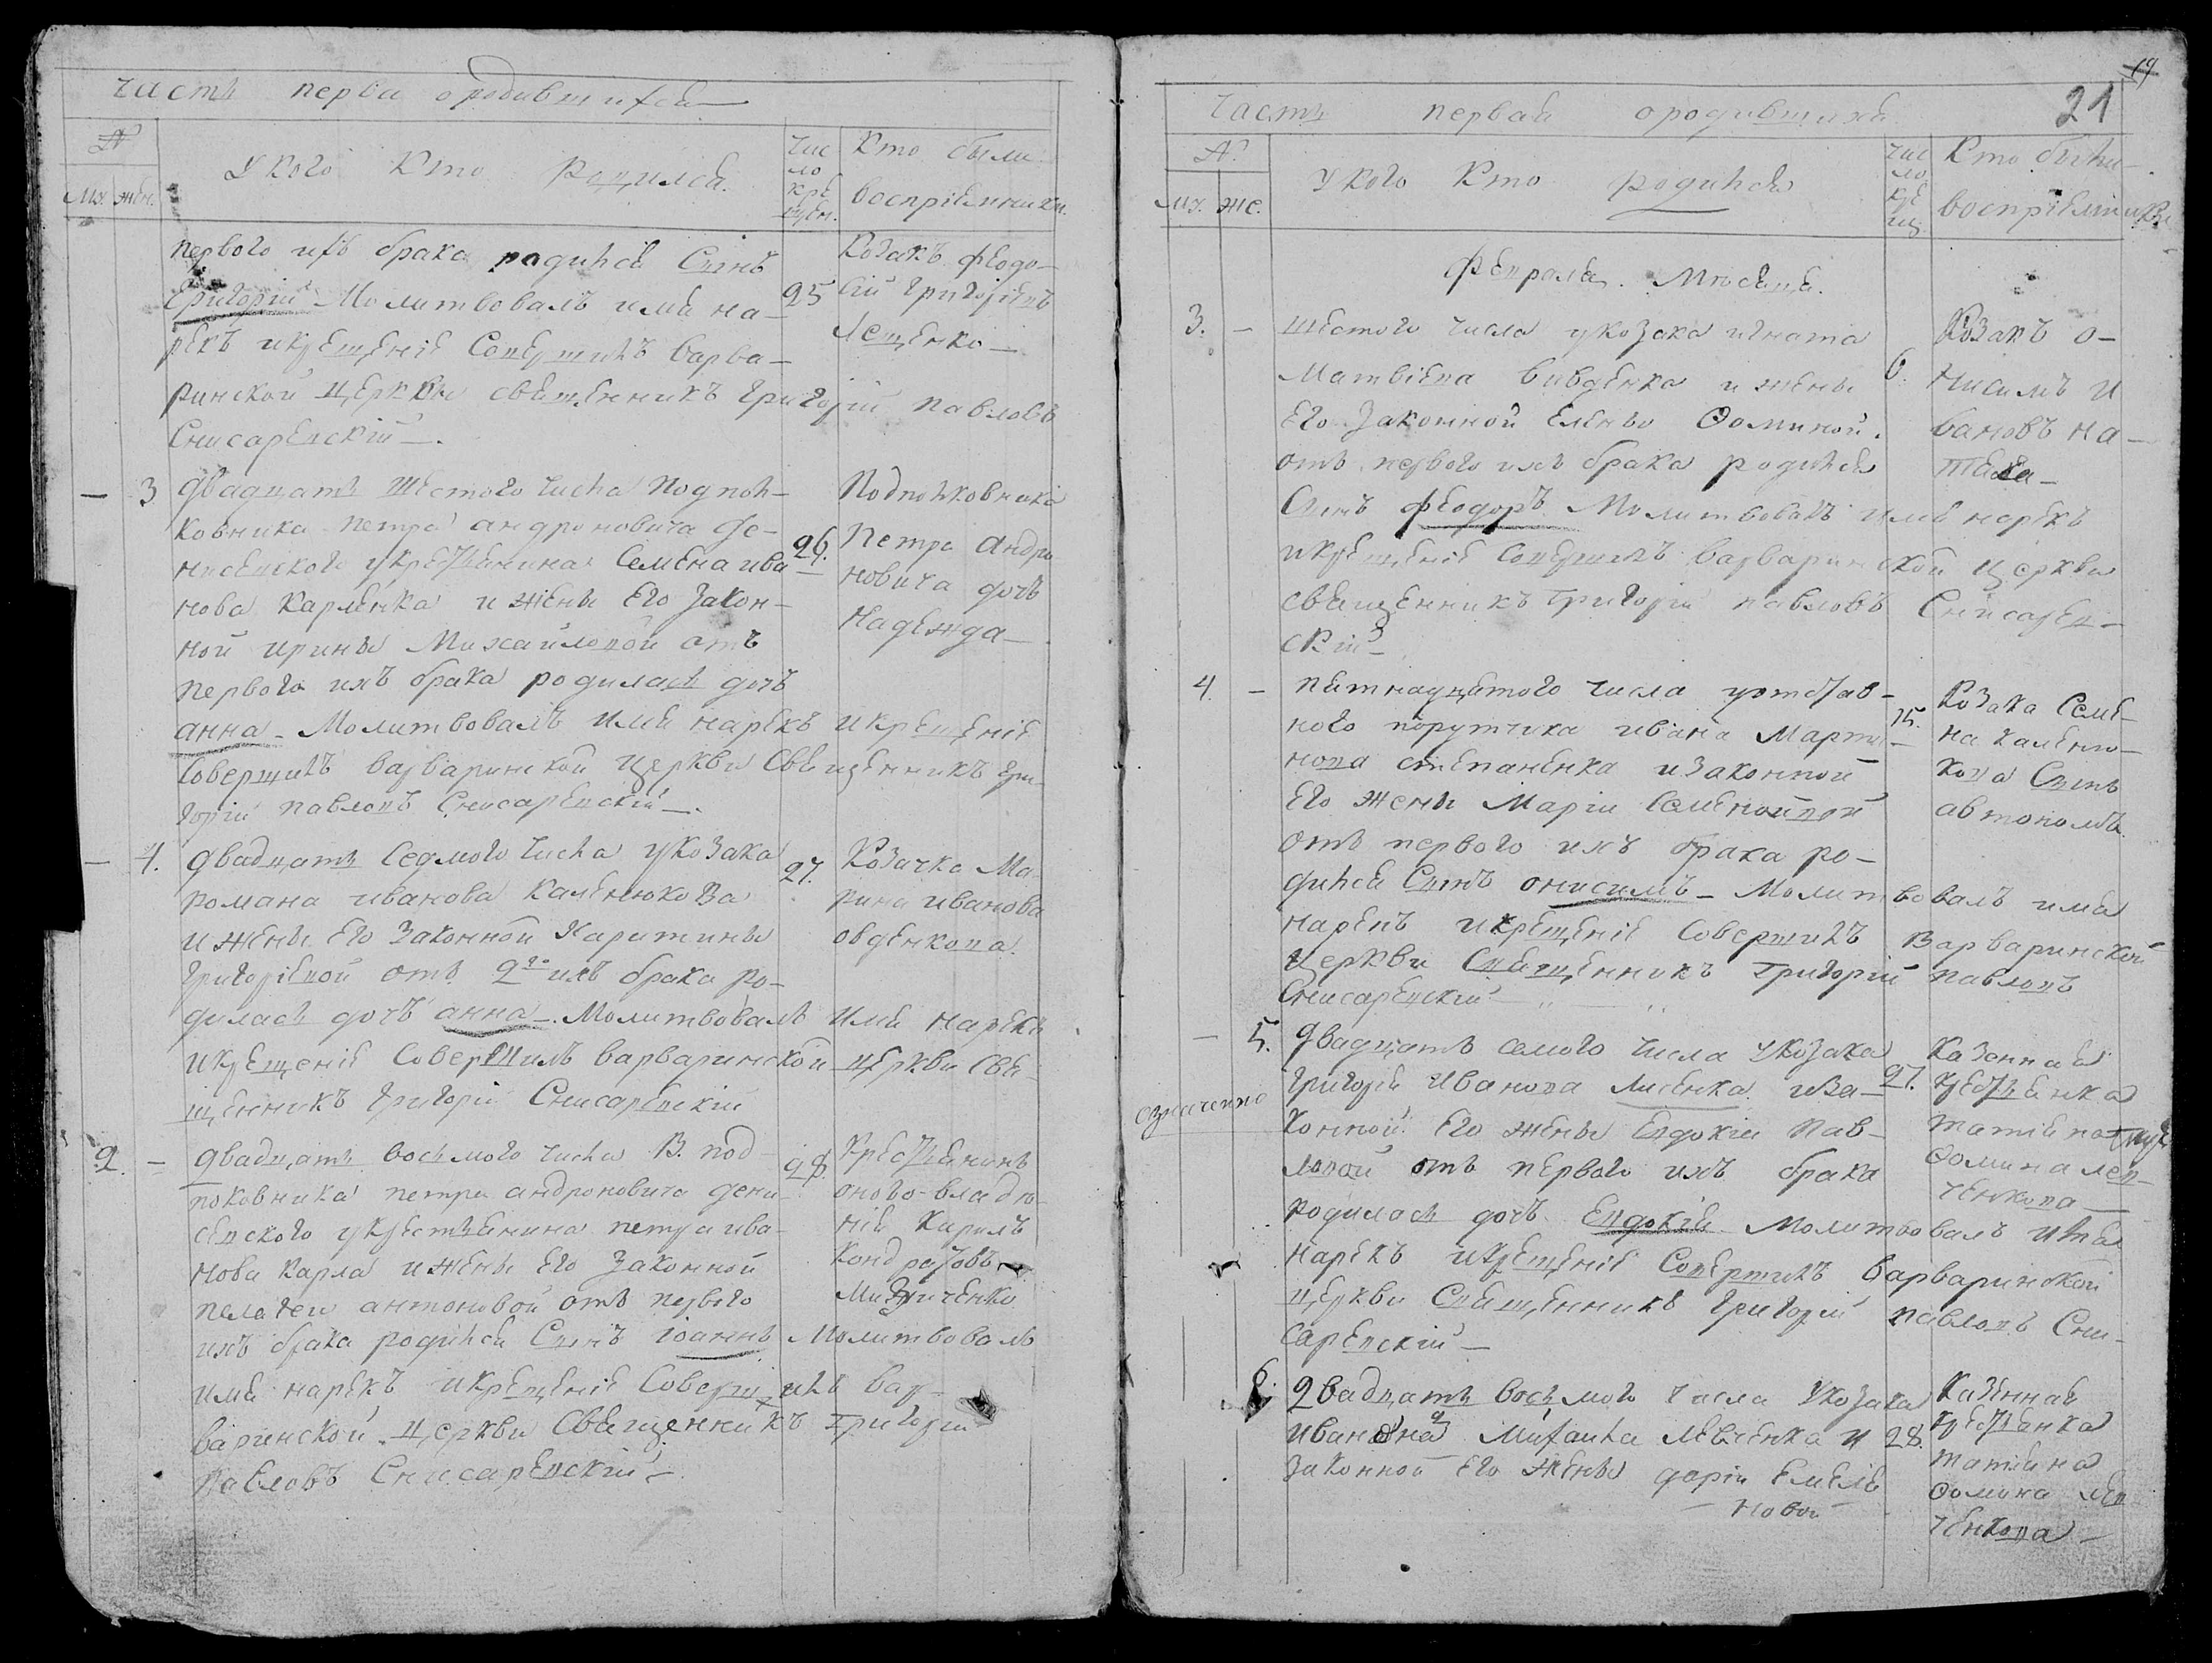 часть перва ородившихся
№
У кого Кто Родился.
Чис
ло
кре
щен.
Кто были
воспріемники.
Мж. жен.
первого ихъ брака родился Сынъ
Григорій Молитвовалъ имя на—
рекъ икрещеніе Совершилъ варва—
ринской церкви священникъ Григорій павловъ
Снисаревскій —.
25
Козакъ феодо—
сій Григоріевъ
Лещенко —
— 3 двадцать Шестого числа Подпол—
ковника петра андроновича Де—
нисевского укрестянина Семена ива
нова Карленка и жены Его Закон—
ной ирины Михайловой отъ
первого ихъ брака родилась дочь
анна — Молитвовалъ имя нарекъ икрещеніе
Совершилъ варваринской церкви Священникъ гри
горій павловъ Снисаревскій —.
26.
Подполковника
Петра Андро
новича дочь
Надежда —
— 4. двадцать Седмого числа укозака
романа иванова Каленюкова
и жены Его Законной Харитины
григоріевой отъ 2го ихъ брака ро—
дилась дочь анна —. Молитвовалъ имя нарекъ
икрещеніе Совершилъ варваринской церкви Свя
щенникъ Григорій Снисаревскій
27.
Козачка Ма
рина иванова
овденкова.
2. — двадцать восьмого числа В. под
полковника петра андроновича дени
севского укрестянина петра ива—
нова Карла и жены Его Законной
пелагеи антоновой отъ первого
ихъ брака родился Сынъ іоаннъ Молитвовалъ
имя нарекъ икрещеніе Совершилъ вар—
варинской церкви Священникъ Григорій
Павловъ Снисаревскій —
28.
Крестянинъ
оного владѣ
нія Кирилъ
Кондратовъ

19
21
Часть первая ородившихся
№
У кого Кто родился
Чис
ло
кре
щ.
Кто были
воспріемники
Мж. же.
Февраля. Мѣсяца.
3. — шестого числа укозака игната
Матвіева вивденка и жены
Его Законной Елены Фоминой.
отъ первого ихъ брака родился
Сынъ феодоръ Молитвовалъ имя нарекъ
икрещеніе Совершилъ варваринской церкви
священникъ Григорій павловъ Снисарев—
скій —
6.
Козакъ о—
нисимъ И
вановъ На—
4. — пятнадцятого числа уотстав—
ного порутчика ивана Марти—
нова степаненка изаконной
Его жены Маріи Семеновной
отъ первого ихъ брака ро—
дился Сынъ онисимъ — Молитвовалъ имя
нарекъ икрещеніе Совершилъ Варваринской
церкви Священникъ Григорій павловъ
Снисаревскій —
15.
Козака Семе—
на Каленю—
кова Сынъ
автономъ.
— 5. двадцать семого числа укозака
Григорія Иванова Лисенка иза—
конной Его жены Евдокіи Пав—
ловой отъ первого ихъ брака
родилась дочь Евдокія Молитвовалъ имя
нарекъ икрещеніе Совершилъ варваринской
церкви Священникъ Григорій павловъ Сни—
саревскій —
означенно
27.
Казенная
крестянка
Фомина лев—
ченкова —
6. двадцать восьмого числа Укозака
ивана Михайла Левченка и
законной Его жены даріи Емеля
новой
28.
Казенная
крестянка
татіяна
Фомина лев
ченкова —